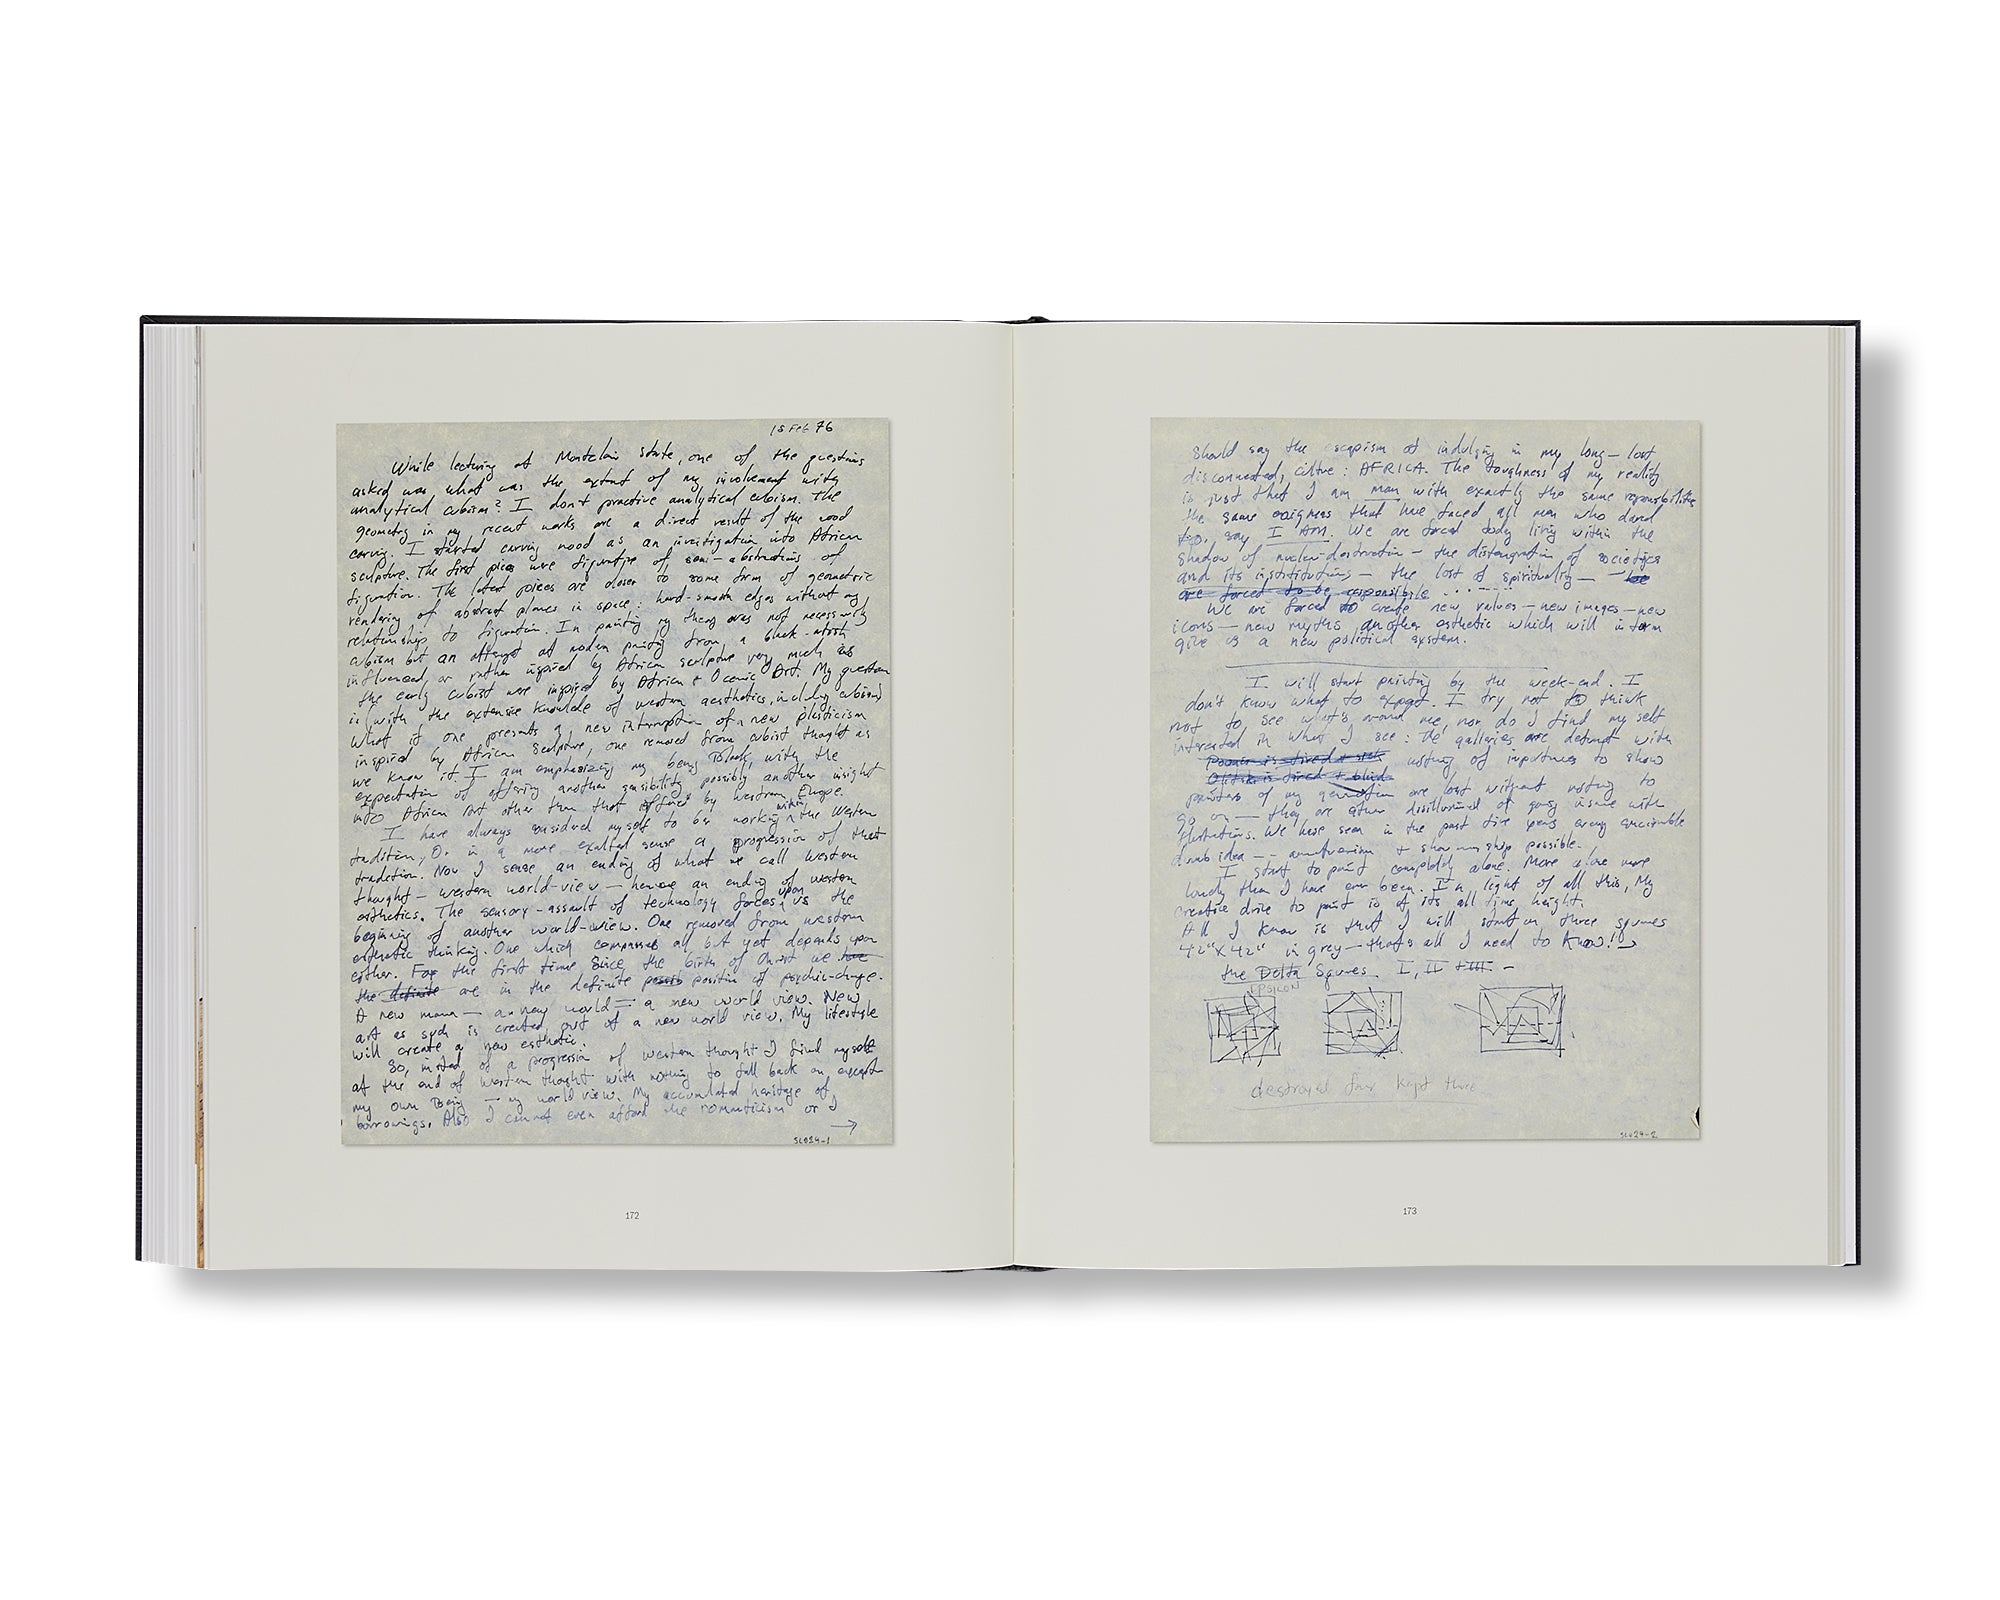 15 Feb 76
While lecturing at Montclair State, one of the questions
asked was what was the extent of my involvement with
analytical cubism? I don't practive analytical cubism. The
geometry in my recent works are a direct result of the wood
carving. I started carving wood as an investigation into African
sculpture. The first pieces were figurative of, semi-abstractions of
figuration. The latest pieces are closer to some form of geometric
rendering of abstract planes in space: hard-smooth edges without any
relationships to figuration. In painting my theory was not necessarily
cubism but an attempt at modern painting from a black-artist
influenced, or rather inspired by African sculpture very much as
the early cubist were inspired by African + Oceanic Art. My question
is (with the extensive knowlede of western aesthetics, including cubism)
what if one presents a new interruption of a new plasticism
inspired by African sculpture, one removed from cubist thought as
we know it. I am emphasizing my being Black, with the
expectation of offering another sensibility possibly another insight
into African Art other than that by western Europe.
I have always considered myself to be working within the Western
tradition, Or in a more exalted sense a progression of that
tradition. Now I sense an ending of what we call western
thought — western world-view — hence an ending of western
esthetics. The sensory-assault of technology forces upon us the
beginning of another world-view. One removed from western
esthetic thinking. One which compasses all but yet depends upon
either. For the first time since the birth of Christ we have
the definite are in the definite position of psychic-change.
A new man — a new world — a new world view. New
art as such is created out of a new world view. My lifestyle
will create a new esthetic.
So, instead of a progression of western thought I find myself
at the end of western thought with nothing to fall back on except
my own Being — my world view. My accumulated heritage of
borrowings. Also I cannot even afford the romanticism or I
→
SL024-1
172
should say the escapism of indulging in my long-lost
disconnected, culture: AFRICA. The toughness of my reality
is just that I am man with exactly the same responsibilities
the same enigmas that have faced all men who dared
to, say I AM. We are faced today living within the
shadow of nuclear-destruction — the distengration of societies
and its institutions — the lost of spirituality — we
are forced to be responsibile ......
We are forced to create new values — new images — new
icons — new myths another esthetic which will in turn
give us a new political system.
I will start painting by the week-end. I
don't know what to expect. I try not to think
not to, see what's around me, nor do I find my self
interested in what I see: The galleries are with
Poons is tired + sick nothing of importance to show
Olitski is tired + blind
painters of my generation are lost without nothing to
go on — they are either disillusioned or going insane with
flustrations. We have seen in the past five years every
dumb idea — + showmanship possible.
I start to paint completely alone. More alone more
lonely than I have ever been. In light of all this, My
creative drive to paint is of its all time height.
All I know is that I will start on three squares
42"x42" in grey — that's all I need to know! →
the Delta Squares I, II + III —
EPSILON
destroyed four kept three
SL024-2
173